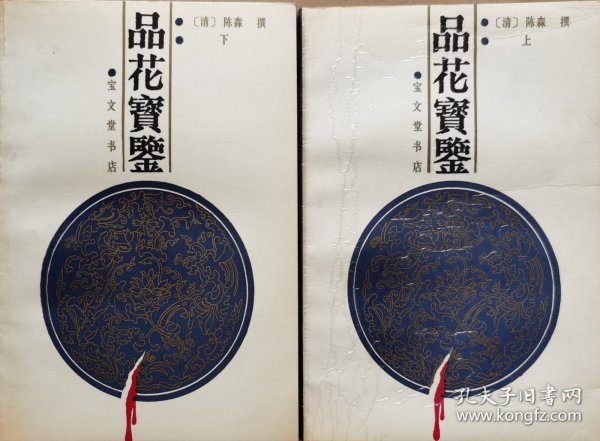 品花寶鑒
〔清〕陈森 撰
下
宝文堂书店
品花寶鑒
〔清〕陈森 撰
上
宝文堂书店
孔夫子旧书网
www.kongfz.com